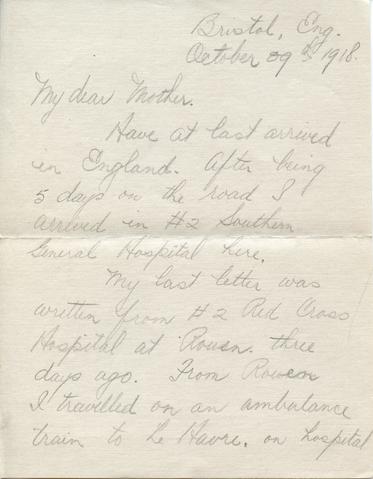 Bristol, Eng.
October 29th 1918.
My dear Mother.
Have at last arrived
in England. After being
5 days on the road I
arrived in #2 Southern
General Hospital here.
My last letter was
written from #2 Red Cross
Hospital at Rouen. three
days ago. From Rouen
I travelled on an ambulance
train to Le Havre. on hospital